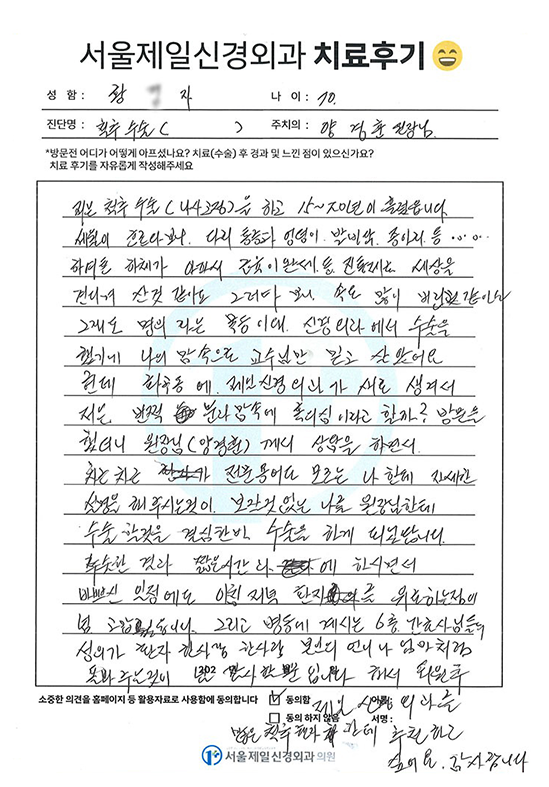 서울제일신경외과 치료후기
성 함 : 황 자 나 이 : 70.
진단명 : 척추 수술 ( ) 주치의 : 양경훈 원장님
*방문전 어디가 어떻게 아프셨나요? 치료(수술) 후 경과 및 느낀 점이 있으신가요?
치료 후기를 자유롭게 작성해주세요
저는 척추 수술 (나사고정)을 하고 15~ 년이 흘렀습니다.
세월이 흐르다보니. 다리 통증과 엉덩이. 발바닥. 종아리. 등 ……
하여튼 하체가 아파서 세상을
산것 같아요 그러다 보니. 속도 많이
그래도 명의 라는 목동 이대. 신경외과 에서 수술을
했기에 나의 맘속으로 교수님만 믿고 살았어요
헌데 화곡동 에. 제일신경외과가 새로 생겨서
저는 반짝 맘속에 호기심 이라고 할까? 방문을
했더니 원장님 (양경훈) 께서 상담을 하면서.
차근차근 전문용어도 모르는 나한테 자세한
설명을 해주시는것이. 보잘것 없는 나를 원장님한테
수술 할것을 결심한바. 수술을 하게 되었답니다.
짧은시간 에 하시면서
바쁘신 일정에도 아침 저녁 환자 를
넘 고맙 습니다. 그리고 병동에 계시는 6층 간호사님들의
성의가 환자 한사람 한사람 언니나 엄마처럼
입니다 해서 퇴원후
소중한 의견을 홈페이지 등 활용자료로 사용함에 동의합니다 동의함 이름:
제일신경외과를
동의 하지 않음 서명:
많은 척추 환자 한테 추천하고
싶어요. 감사합니다
서울제일신경외과의원